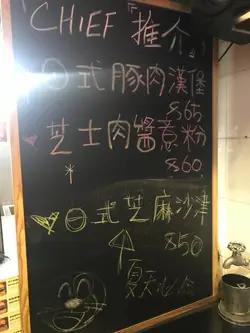 CHIEF「推介」
日式豚肉漢堡
$65
芝士肉醬意粉
$60
日式芝麻沙津
$50
夏天必食